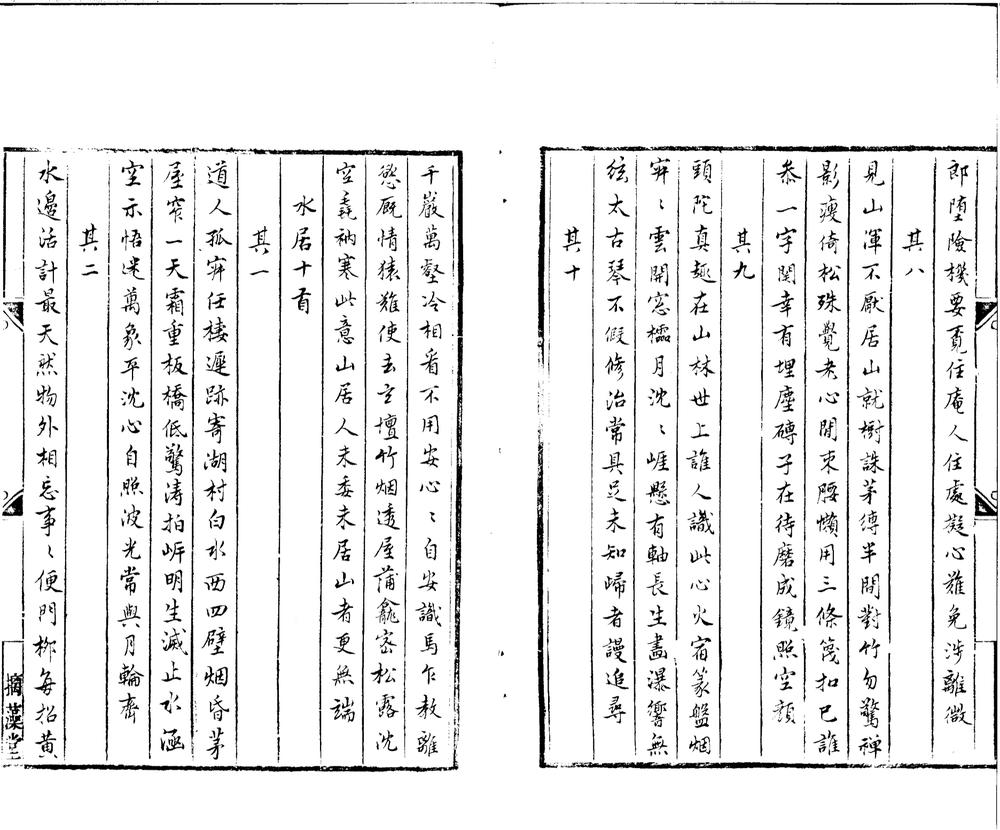 郎堕險機要覔住庵人住處擬心難免涉離微
其八
見山渾不厭居山就樹誅茅縛半間對竹勿驚禪
影瘦倚松殊覺老心閒束腰懶用三條篾扣已誰
叅一字関幸有埋塵磚子在待磨成鏡照空顔
其九
頭陀真趣在山林世上誰人識此心火宿篆盤烟
寂〻雲開窓櫺月沈〻崖懸有軸長生畫瀑響無
絃太古琴不假修治常具足未知歸者謾追尋
其十
千巖萬壑冷相看不用安心〻自安識馬乍教離
慾厩情猿難使去空壇竹烟透屋蒲龕密松露沈
空毳衲寒此意山居人未委未居山者更無端
水居十首
其一
道人孤寂任棲遲跡寄湖村白水西四壁烟昏茅
屋窄一天霜重板橋低驚濤拍岸明生滅止水涵
空示悟迷萬象平沈心自照波光常與月輪齊
其二
水邊活計最天然物外相忘事〻便門柳每招黄
摛藻堂